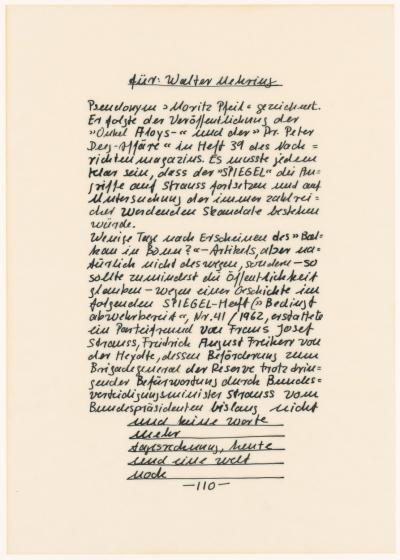 für: Walter Mehring
Pseudonym »Moritz Pfeil« gezeichnet.
Er folgte der Veröffentlichung der
»Onkel Aloys-« und der »Dr. Peter
Deeg-Affäre« in Heft 39 des Nach=
richtenmagazins. Es musste jedem
klar sein, dass der "SPIEGEL" die An=
griffe auf Strauss fortsetzen und auf
Untersuchung der immer zahlrei=
cher werdenden Skandale bestehen
würde.
Wenige Tage nach Erscheinen des »Bal=
kan in Bonn?«-Artikels, aber na=
türlich nicht deswegen, sondern – so
sollte zumindest die Öffentlichkeit
glauben – wegen einer Geschichte im
folgenden SPIEGEL-Heft (»Bedingt
abwehrbereit«, Nr. 41/1962, erstattete
ein Parteifreund von Franz Josef
Strauss, Friedrich August Freiherr von
der Heydte, dessen Beförderung zum
Brigadegeneral der Reserve trotz drin=
gender Befürwortung durch Bundes=
verteidigungsminister Strauss vom
Bundespräsidenten bislang nicht
und keine worte
mehr
tagsrechnung, heute
und eine welt
noch
—110—